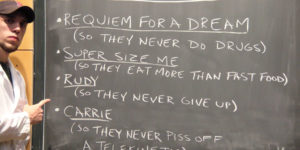 • REQUIEM FOR A DREAM
(SO THEY NEVER DO DRUGS)
• SUPER SIZE ME
(SO THEY EAT MORE THAN FAST FOOD)
• RUDY
(SO THEY NEVER GIVE UP)
• CARRIE
(SO THEY NEVER PISS OFF
A TELEKINETIC)